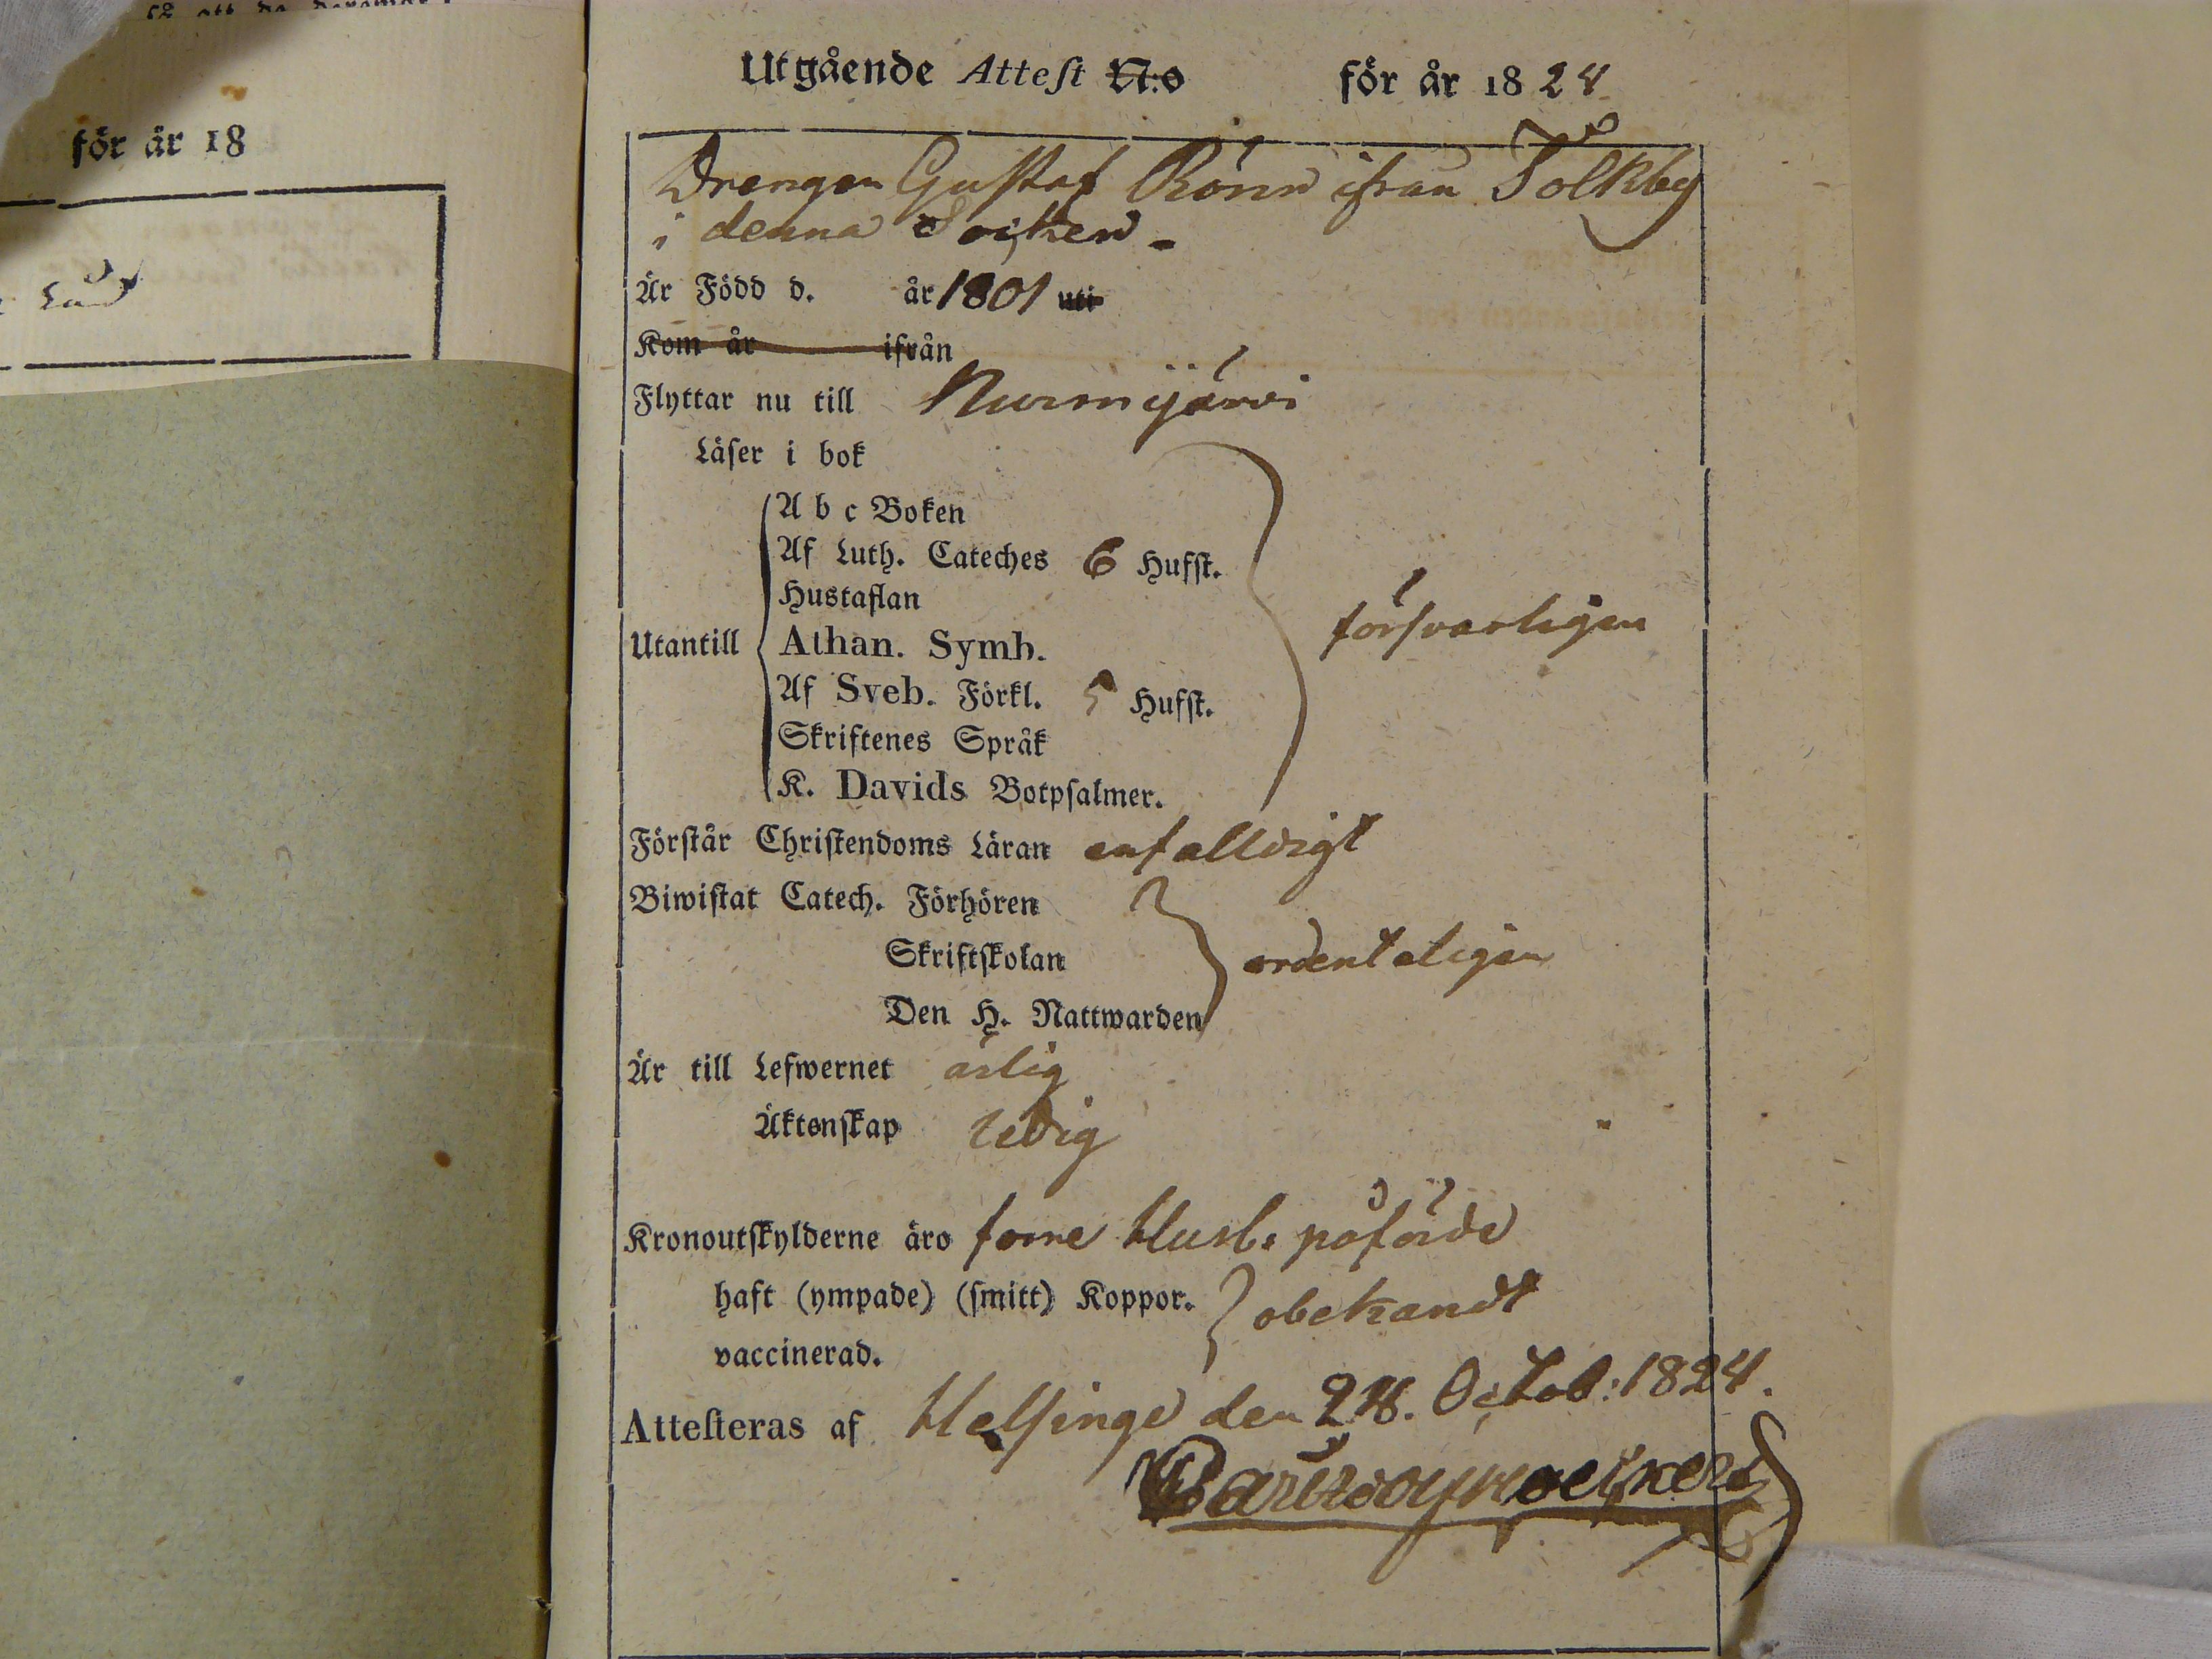 för år 18
Utgående Attest N:o för år 1824
Drengen Gustaf Rönn ifrån Tolkby
i denna Socken.
Är Född d. år 1801 uti
Kom år ifrån
Flyttar nu till Nurmijärvi
Läser i bok
A b c Boken
Af Luth. Cateches 6 Hufst.
Hustaflan
försvarligen
Utantill Athan. Symb.
Af Sveb. Förkl. 5 Hufst.
Skriftenes Språk
K. Davids Botpsalmer.
Förstår Christendoms Läran enfalldigt
Biwistat Catech. Förhören
Skriftskolan ordenteligen
Den H. Nattwarden
Är till Lefwernet ärlig
Äktenskap ledig
Kronoutskylderne äro forne Husb. påförde
haft (ympade) (smitt) Koppor. obekandt
vaccinerad.
Attesteras af Helsinge den Octob: 1824.